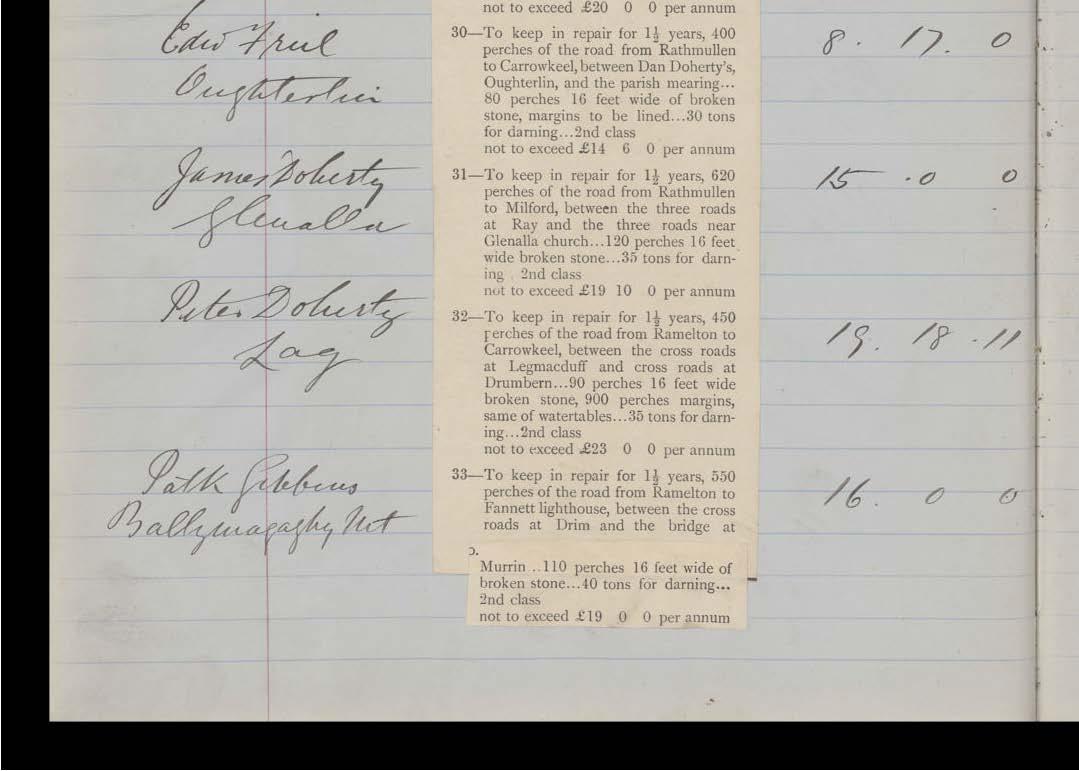 not to exceed £20 0 0 per annum
Edw Friel
Oughterlin
30—To keep in repair for 1½ years, 400
perches of the road from Rathmullen
to Carrowkeel, between Dan Doherty's,
Oughterlin, and the parish mearing...
80 perches 16 feet wide of broken
stone, margins to be lined...30 tons
for darning...2nd class
not to exceed £14 6 0 per annum
8. 17. 0
James Doherty
Glenalla
31—To keep in repair for 1½ years, 620
perches of the road from Rathmullen
to Milford, between the three roads
at Ray and the three roads near
Glenalla church...120 perches 16 feet
wide broken stone...35 tons for darn-
ing . 2nd class
not to exceed £19 10 0 per annum
15 .0 0
Peter Doherty
Lag
32—To keep in repair for 1½ years, 450
perches of the road from Ramelton to
Carrowkeel, between the cross roads
at Legmacduff and cross roads at
Drumbern...90 perches 16 feet wide
broken stone, 900 perches margins,
same of watertables...35 tons for darn-
ing...2nd class
not to exceed £23 0 0 per annum
19. 18 .11
Patk Gibbons
Ballymagaghy Mt
33—To keep in repair for 1½ years, 550
perches of the road from Ramelton to
Fannett lighthouse, between the cross
roads at Drim and the bridge at
Murrin ..110 perches 16 feet wide of
broken stone...40 tons for darning...
2nd class
not to exceed £19 0 0 per annum
16. 0 0